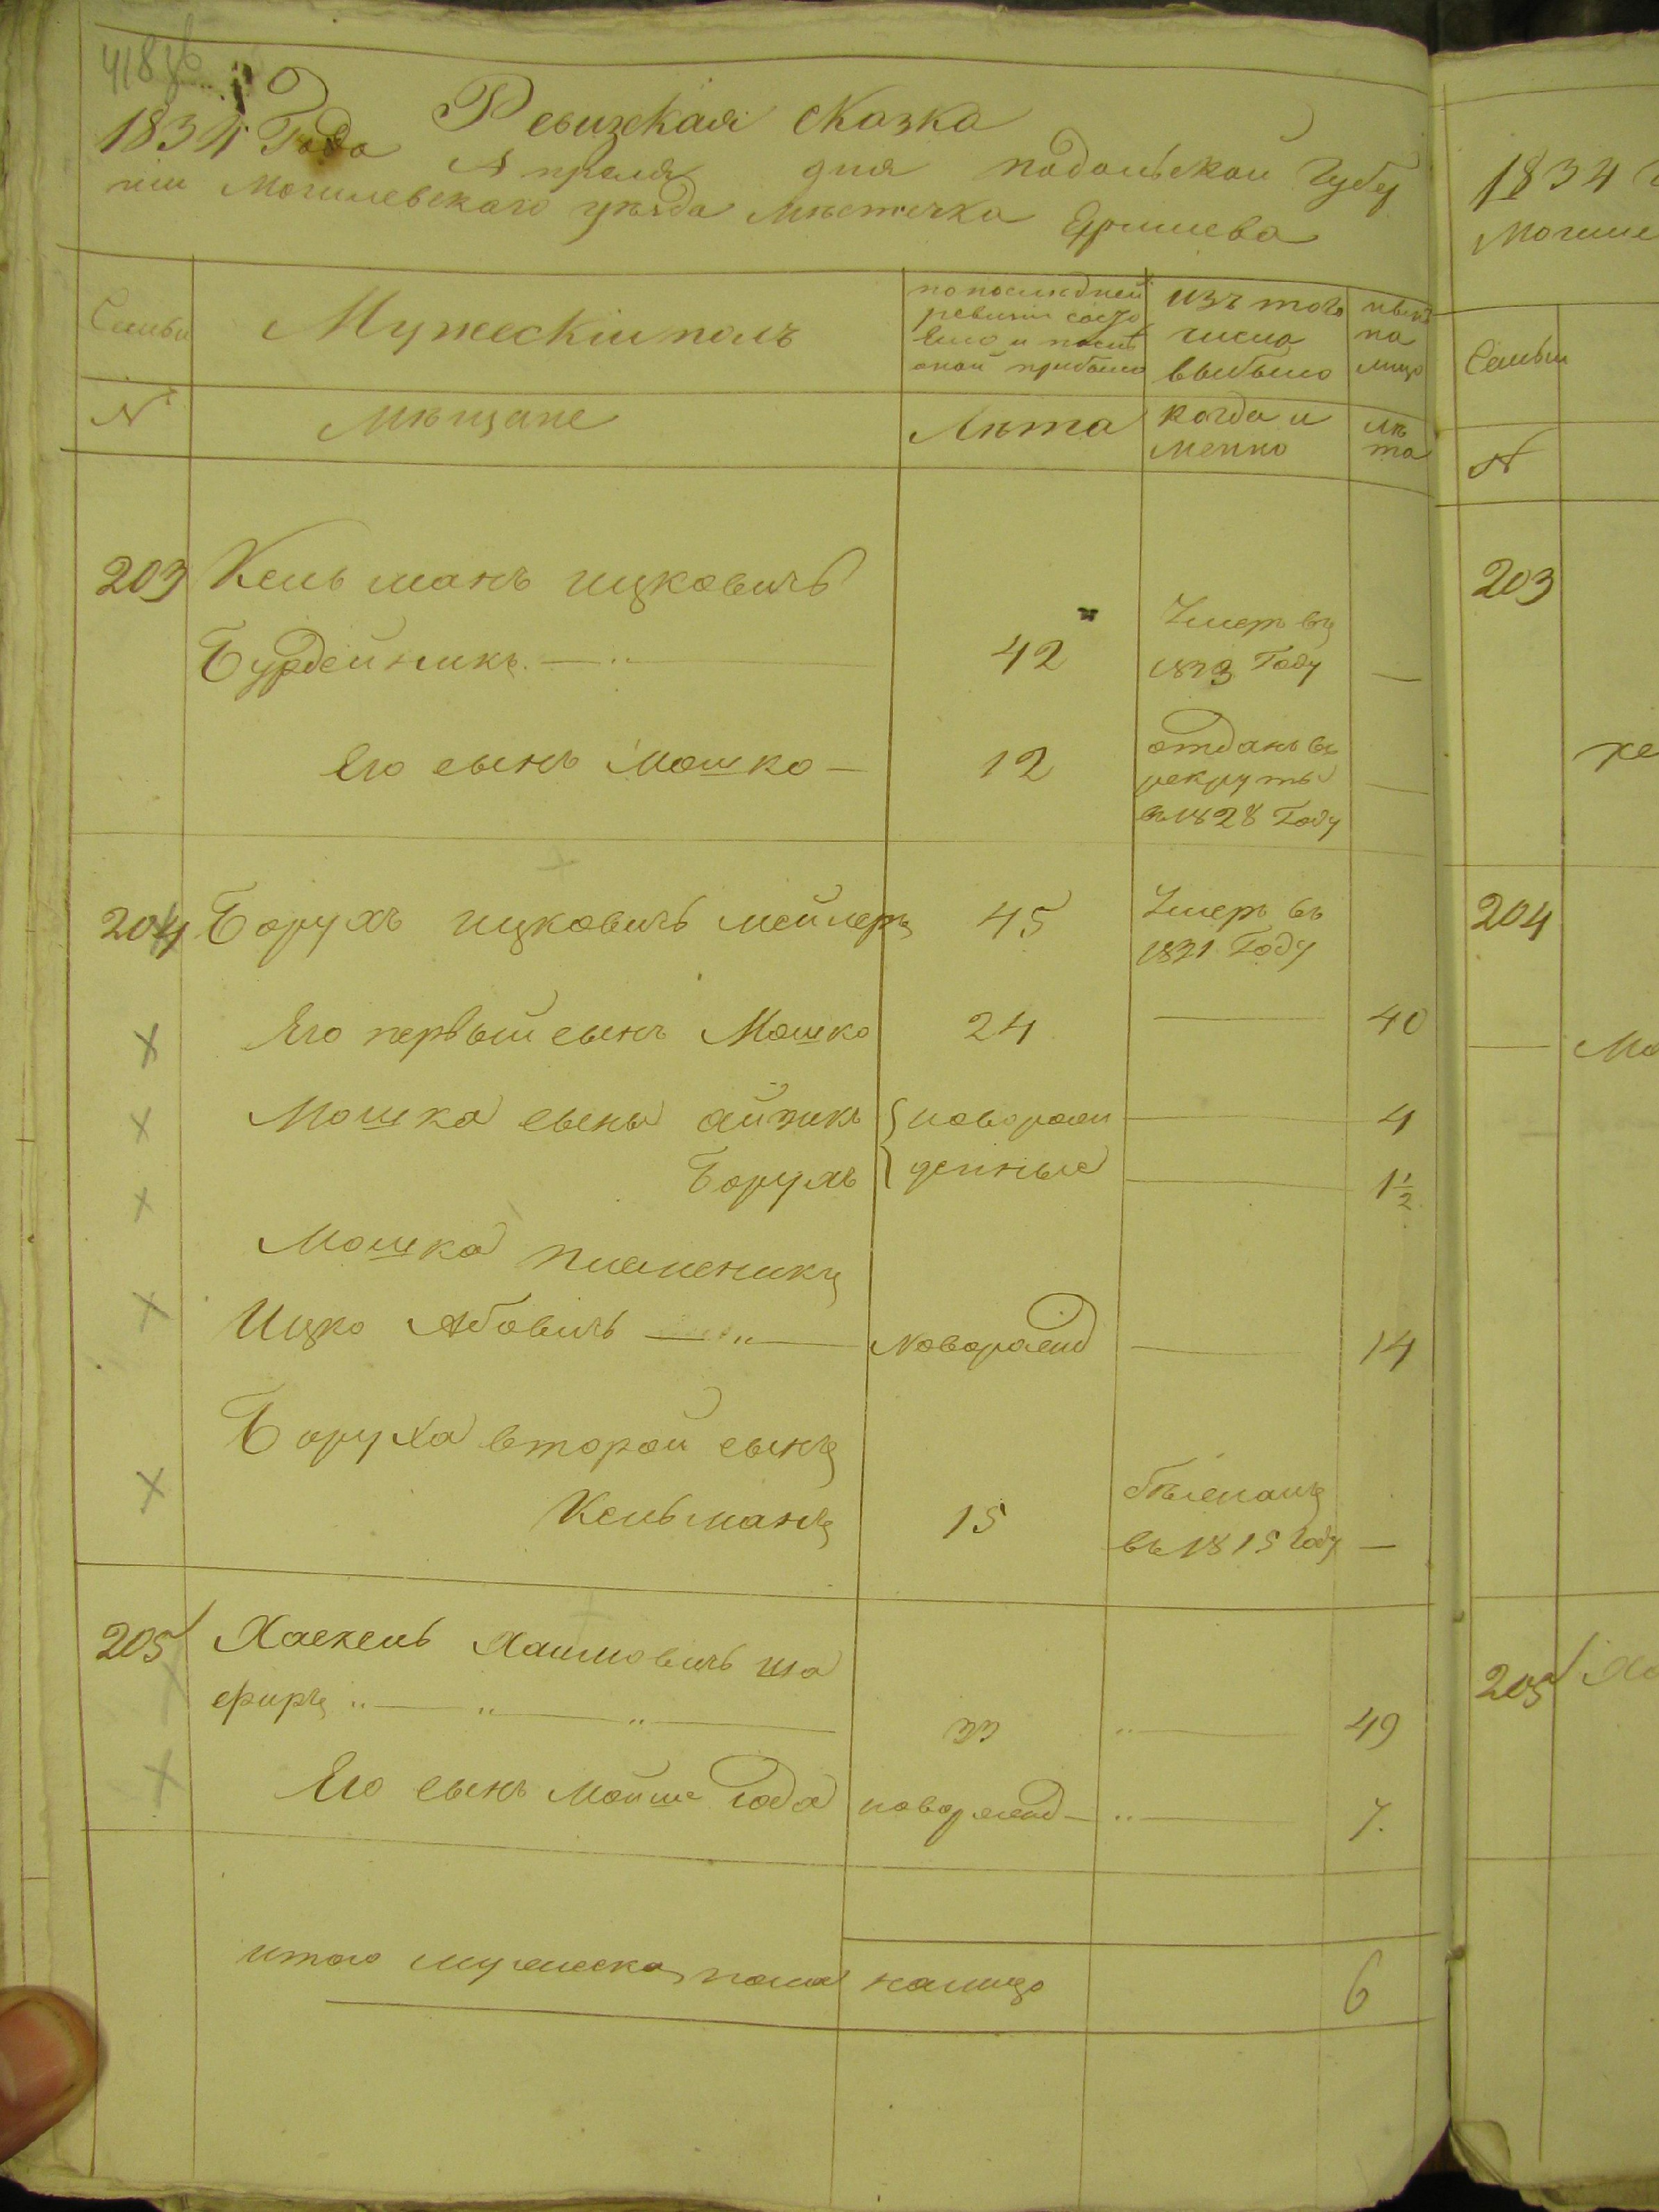 Ревизкая сказка
1834 Года Апреля дня подольской Губер
ніи Могилевскаго уѣзда Мѣстечка Яришева
Семьи
Мужескій полъ
по последней
ревизіи состо
яло и после
оной прибыло
изъ того
числа
выбыло
ныне
на
лицо
№
Мѣщане
Лѣта
когда и
менно
лѣ
та
203 Кельманъ ицковичъ
Бурдейникъ 42 Умеръ въ
1823 Году —
Его сынъ Мошко — 12 отданъ въ
рекруты
въ 1828 Году —
204 Борухъ ицковичъ мейлеръ 45 Умеръ въ
1831 Году
Его первый сынъ Мошко 24 — 40
Мошка сыны айзикъ новорож — 4
Борухъ денные — 1½
Мошка племеникъ
Ицко Абовичъ новорожд — 14
Боруха второй сынъ
Кельманъ 15 бѣжалъ
въ 1815 году —
205 Хаскель Хаимовичъ ша
фиръ 33 — 49
Его сынъ Мойше Года новорожд — 7.
итого мужеска пола налицо 6
1834
Могиле
Семьи
№
203
же
204
— Мо
205 Ха